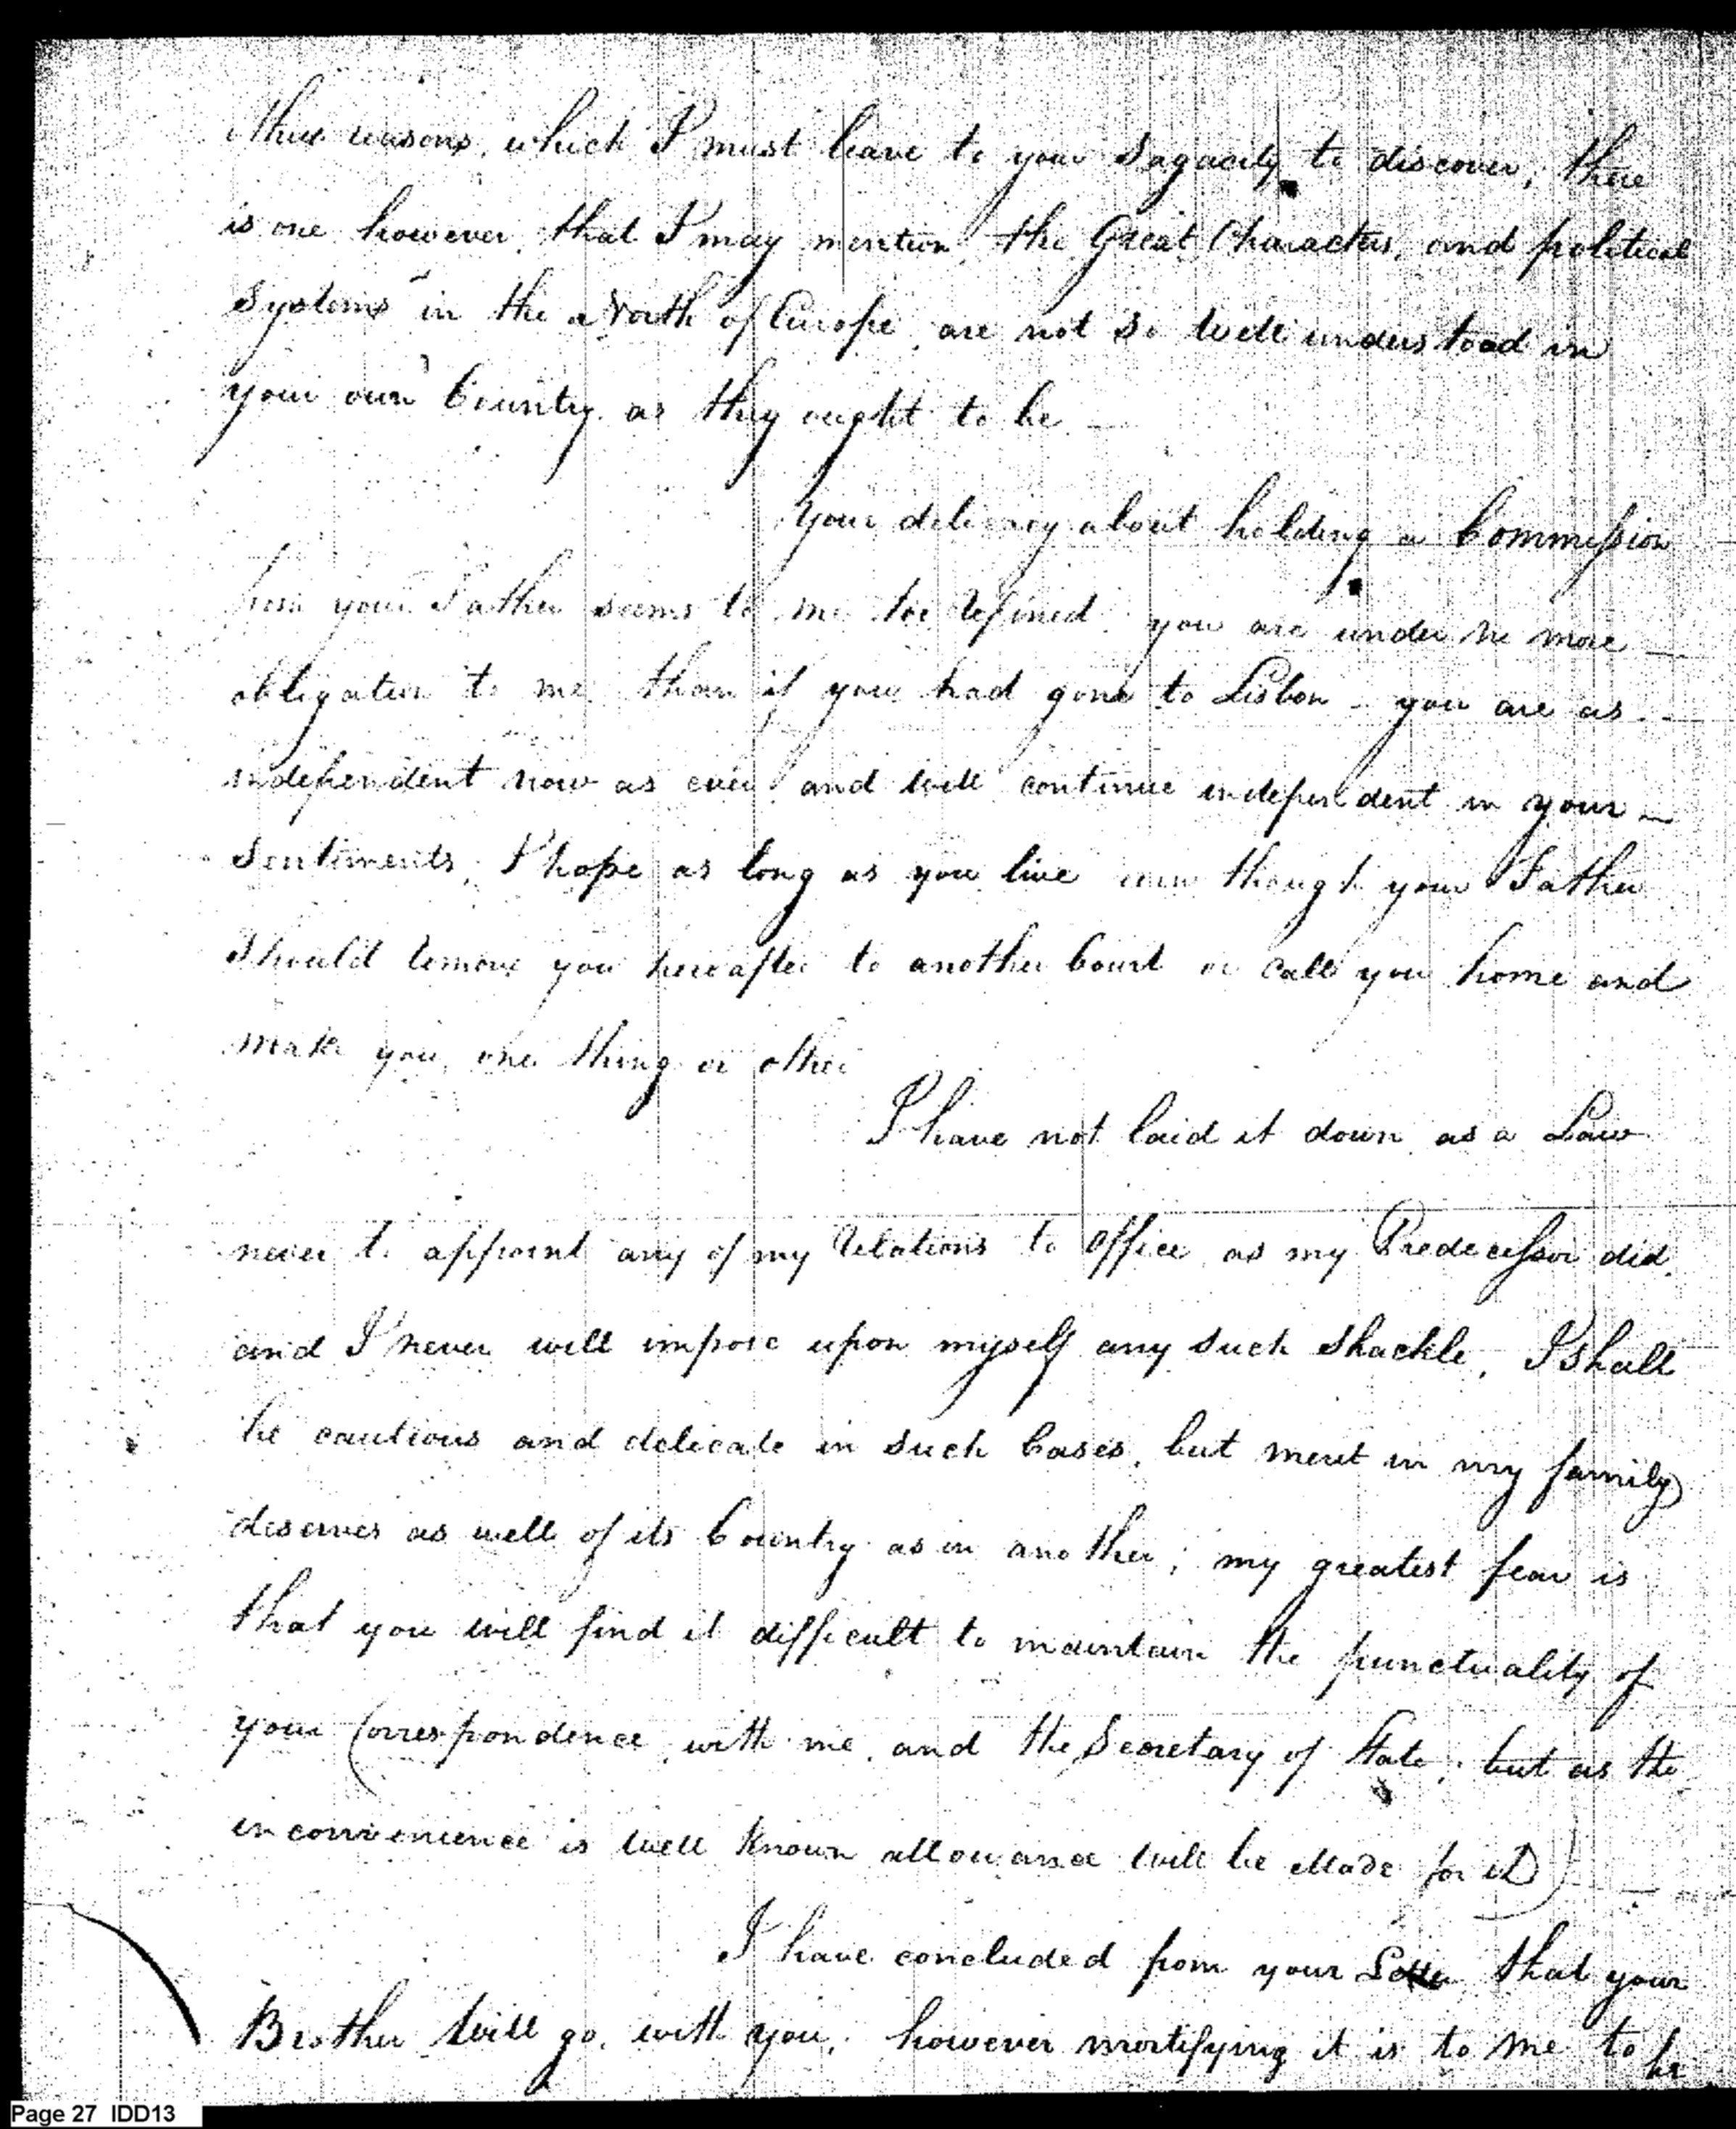 other reasons, which I must leave to your Sagacity to discover, there
is one however, that I may mention, the Great Characters, and political
Systems in the North of Europe, are not so well understood in
your own Country as they ought to be —
Your delicacy about holding a Commission
from your Father seems to me too refined, you are under no more —
obligation to me than if you had gone to Lisbon – you are as
independent now as ever, and will continue independent in your —
Sentiments, I hope as long as you live even though your Father
Should remove you hereafter to another Court or call you home and
make you, one thing or other
I have not laid it down as a Law
never to appoint any of my relations to office, as my Predecessor did,
and I never will impose upon myself any such Shackle, I shall
be cautious and delicate in such Cases, but merit in my family
deserves as well of its Country as in another; my greatest fear is
that you will find it difficult to maintain the punctuality of
your Correspondence, with me, and the Secretary of State; but as the
inconvenience is well Known allowance will be Made for it
I have concluded from your Letter that your
Brother will go, with you, however mortifying it is to me to be
Page 27 IDD13